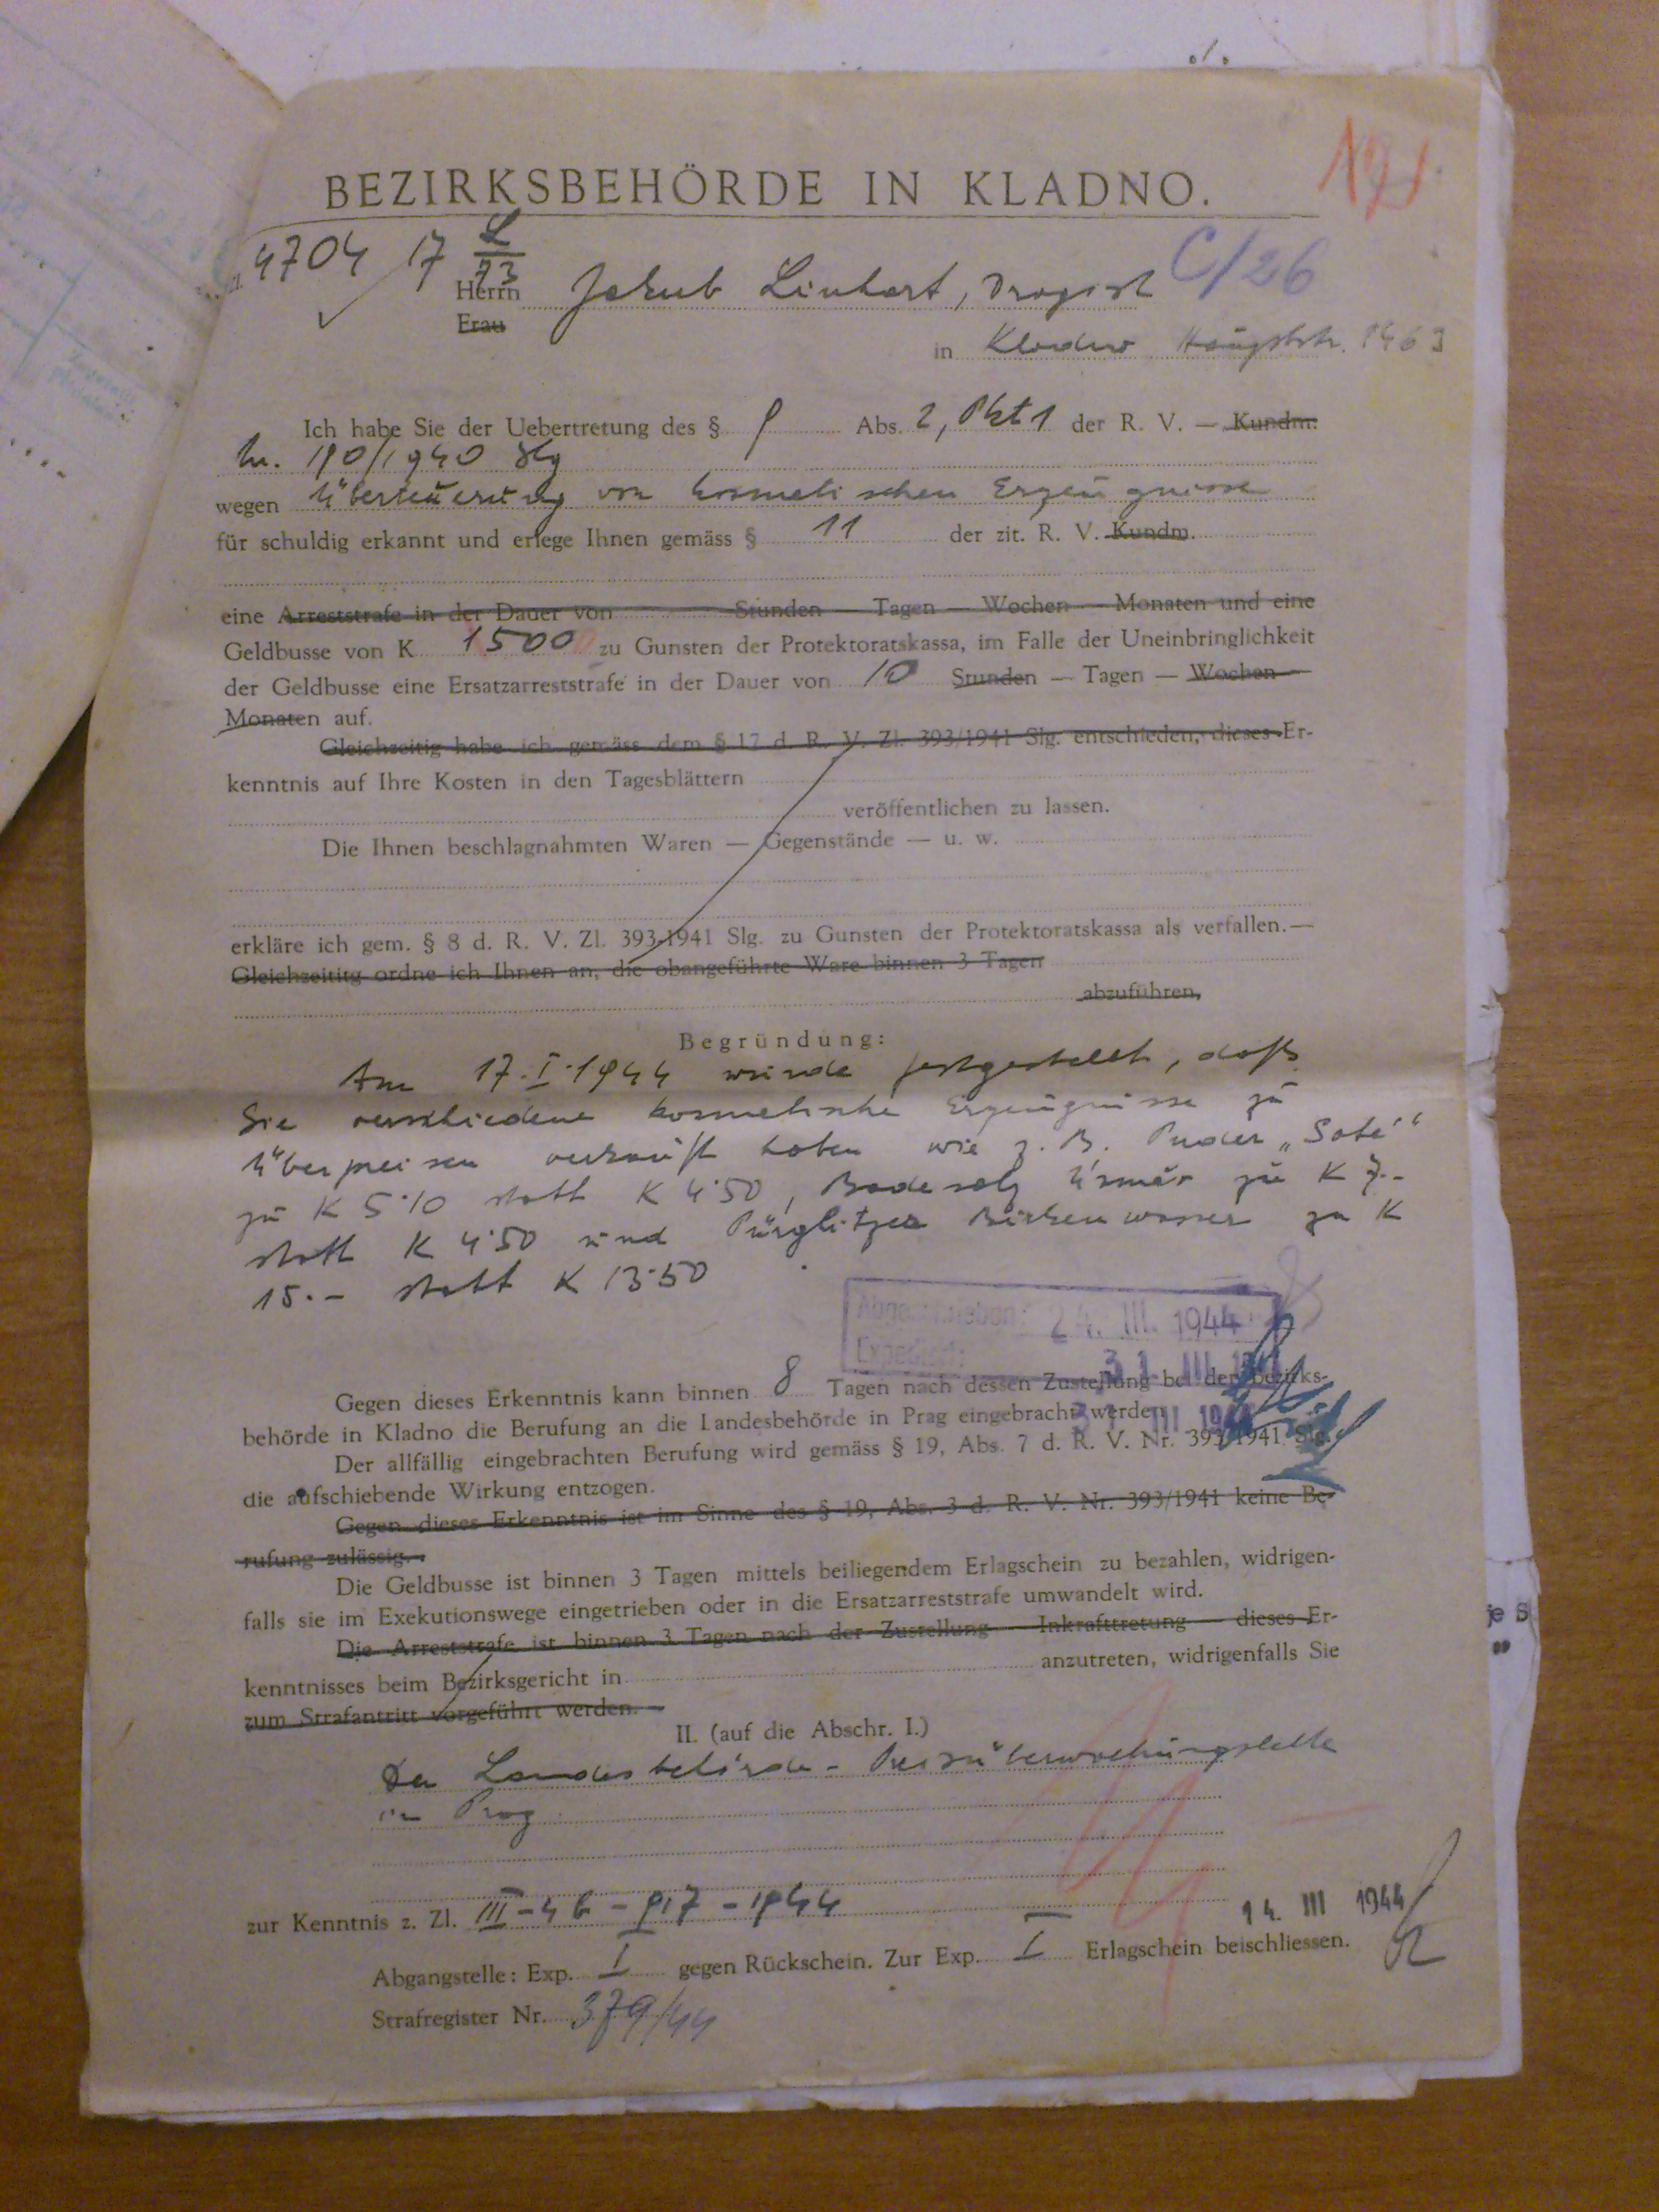 BEZIRKSBEHÖRDE IN KLADNO.
4704 17 L
73
C/26
Herrn Jakub Linhart, Drogist
Frau
in Kladno Hauptstr. 1463
Ich habe Sie der Uebertretung des § Abs. 2, Pkt 1 der R. V. — Kundm.
190/1940 Slg
wegen Überteuerung von kosmetischen Erzeugnisse
für schuldig erkannt und erlege Ihnen gemäss § 11 der zit. R. V. Kundm.
eine Arreststrafe in der Dauer von Stunden — Tagen — Wochen — Monaten und eine
Geldbusse von K 1500 zu Gunsten der Protektoratskassa, im Falle der Uneinbringlichkeit
der Geldbusse eine Ersatzarreststrafe in der Dauer von 10 Stunden — Tagen — Wochen —
Monaten auf.
Gleichzeitig habe ich gemäss dem § 17 d. R. V. Zl. 393/1941 Slg. entschieden, dieses Er-
kenntnis auf Ihre Kosten in den Tagesblättern
veröffentlichen zu lassen.
Die Ihnen beschlagnahmten Waren — Gegenstände — u. w.
erkläre ich gem. § 8 d. R. V. Zl. 393-1941 Slg. zu Gunsten der Protektoratskassa als verfallen.—
Gleichzeititg ordne ich Ihnen an, die obangeführte Ware binnen 3 Tagen
abzuführen,
Begründung:
Am 17.I.1944 wurde festgestellt, daß
Sie verschiedene kosmetische Erzeugnisse zu
Überpreisen verkauft haben wie z. B. Puder „Soté"
zu K 5·10 statt K 4·50, Badesalz zu K 7.-
statt K 4·50 und Pürglitzer Birkenwasser zu K
15.- statt K 13·50
Abgeschrieben: 24. III. 1944
Expediert: 31. III. 1944
31. III 1944
Gegen dieses Erkenntnis kann binnen 8 Tagen nach dessen Zustellung bei der Bezirks-
behörde in Kladno die Berufung an die Landesbehörde in Prag eingebracht werden
Der allfällig eingebrachten Berufung wird gemäss § 19, Abs. 7 d. R. V. Nr. 393/1941 Slg.
die aufschiebende Wirkung entzogen.
Gegen dieses Erkenntnis ist im Sinne des § 19, Abs. 3 d. R. V. Nr. 393/1941 keine Be-
rufung zulässig.
Die Geldbusse ist binnen 3 Tagen mittels beiliegendem Erlagschein zu bezahlen, widrigen-
falls sie im Exekutionswege eingetrieben oder in die Ersatzarreststrafe umwandelt wird.
Die Arreststrafe ist binnen 3 Tagen nach der Zustellung — Inkrafttretung — dieses Er-
kenntnisses beim Bezirksgericht in anzutreten, widrigenfalls Sie
zum Strafantritt vorgeführt werden. —
II. (auf die Abschr. I.)
Der Landesbehörde - Preisüberwachungsstelle
in Prag
zur Kenntnis z. Zl. III-4b-917-1944
14. III 1944
Abgangstelle: Exp. I gegen Rückschein. Zur Exp. I Erlagschein beischliessen.
Strafregister Nr. 379/44